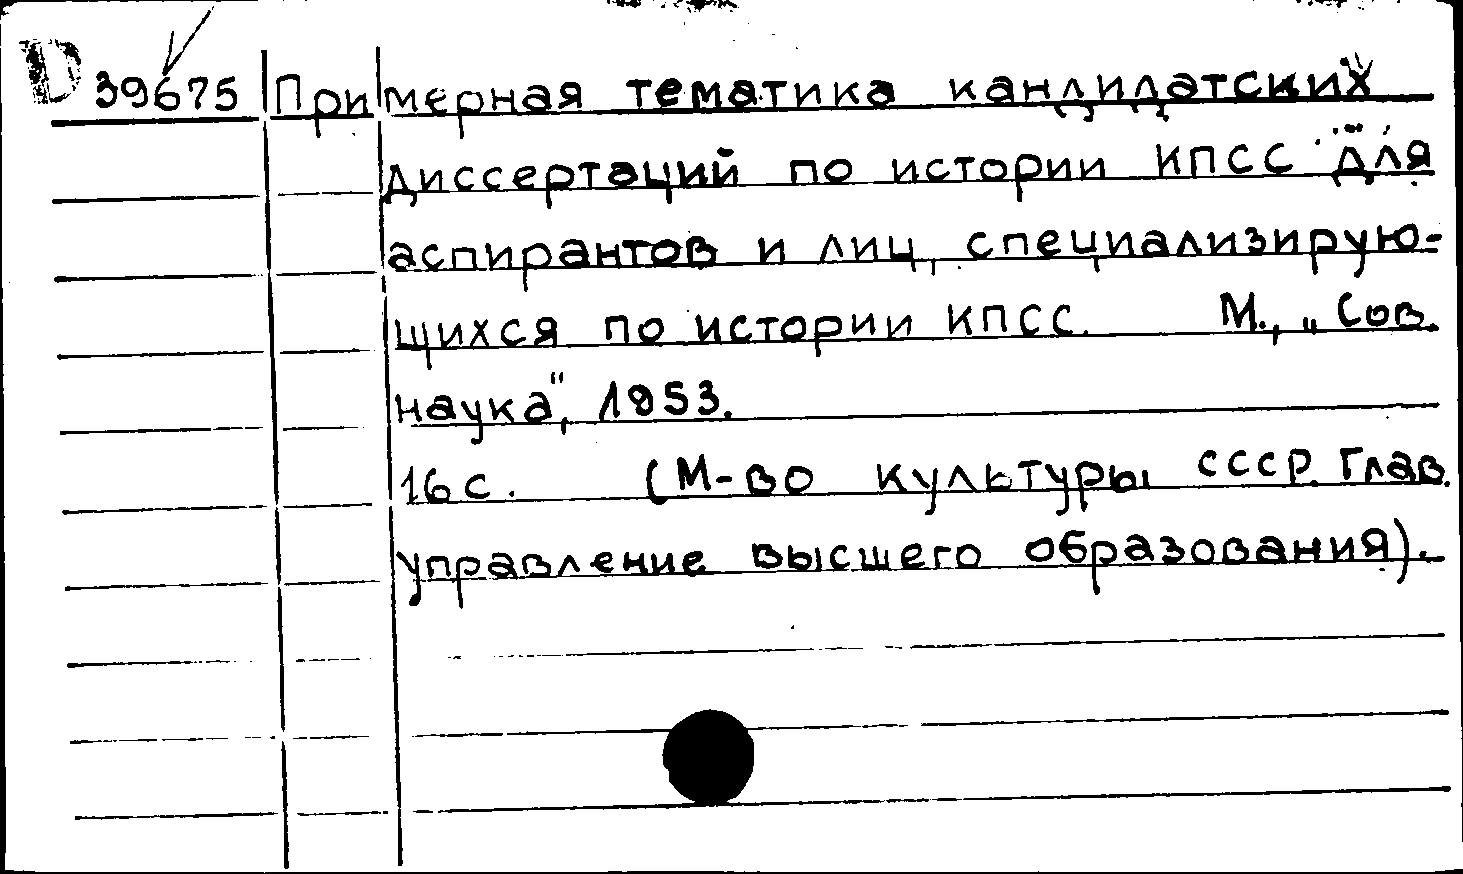 D 39675 Примерная тематика кандидатских
диссертаций по истории КПСС для
аспирантов и лиц, специализирую-
щихся по истории КПСС. М., „Сов.
наука", 1953.
16 с. (М-во культуры СССР. Глав.
управление высшего образования).